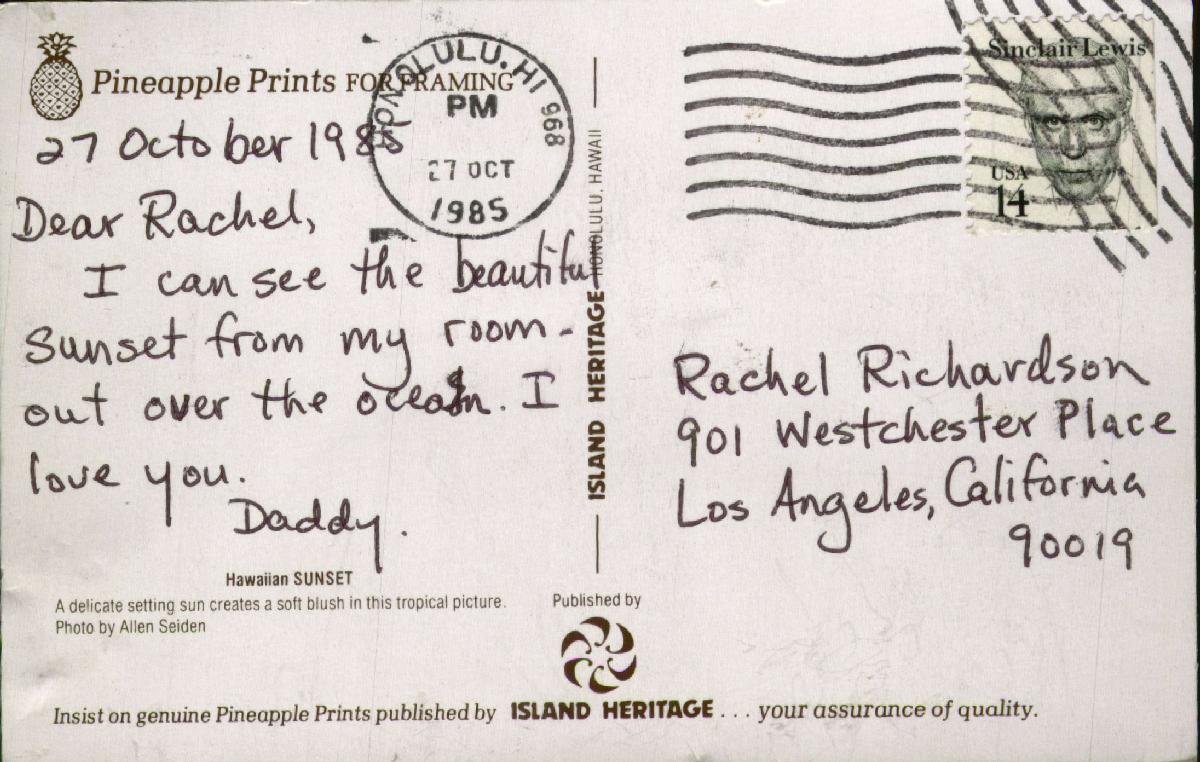 Pineapple Prints FOR FRAMING
27 October 1985
Dear Rachel,
I can see the beautiful
sunset from my room -
out over the ocean. I
love you.
Daddy.
Hawaiian SUNSET
A delicate setting sun creates a soft blush in this tropical picture.
Photo by Allen Seiden
HONOLULU, HI 968
PM
27 OCT
1985
ISLAND HERITAGE HONOLULU, HAWAII
Sinclair Lewis
USA
14
Rachel Richardson
901 Westchester Place
Los Angeles, California
90019
Published by
Insist on genuine Pineapple Prints published by ISLAND HERITAGE . . . your assurance of quality.